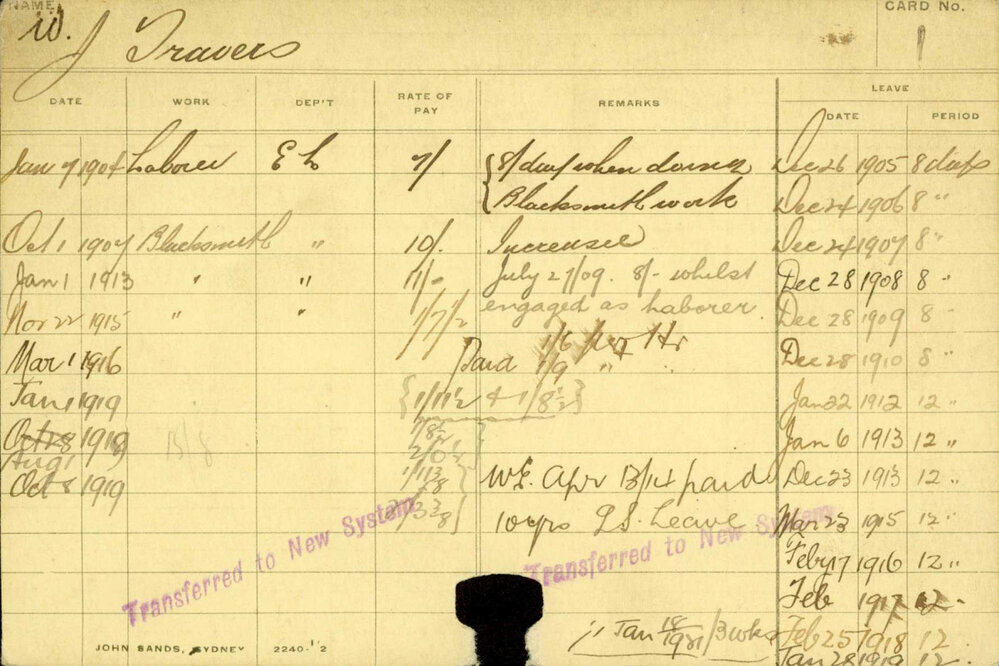 NAME CARD No.
W. J Travers 1
LEAVE
DATE WORK DEP'T RATE OF PAY REMARKS DATE PERIOD
Jan 7 1904 Laborer E L 7/ 8/ day when doing Dec 26 1905 8 days
Blacksmith work Dec 24 1906 8 "
Oct 1 1907 Blacksmith " 10/. Increased Dec 24 1907 8 "
Jan 1 1913 " " 11/- July 27/09. 8/- whilst Dec 28 1908 8 "
Nov 22 1915 " " 1/7/2 engaged as Laborer. Dec 28 1909 8 "
Mar 1 1916 Paid 1/6 per Hr Dec 28 1910 8 "
1/9 " "
Jan 1 1919 {1/11½ & 1/8½} Jan 22 1912 12 "
Oct 28 1919 B/8 1/8½ Jan 6 1913 12 "
Aug 1 2/0½
Oct 8 1919 W.E. Apr 13/14 paid Dec 23 1913 12 "
10 yrs L.S. Leave Mar 23 1915 12 "
Transferred to New System Transferred to New System
Feby 17 1916 12 "
Feb 1917 12 "
Jan 18/1921 / 3 wks Feb 25 1918 12
JOHN SANDS, SYDNEY 2240-1'2 Jan 28 1919 12 "